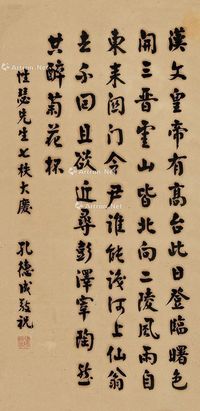 漢文皇帝有高台此日登臨曙色
開三晉雲山皆北向二陵風雨自
東来関门令尹誰能識河上仙翁
去不回且欲近尋彭澤宰陶然
共醉菊花杯
性瑟先生七秩大慶
孔德成敬祝